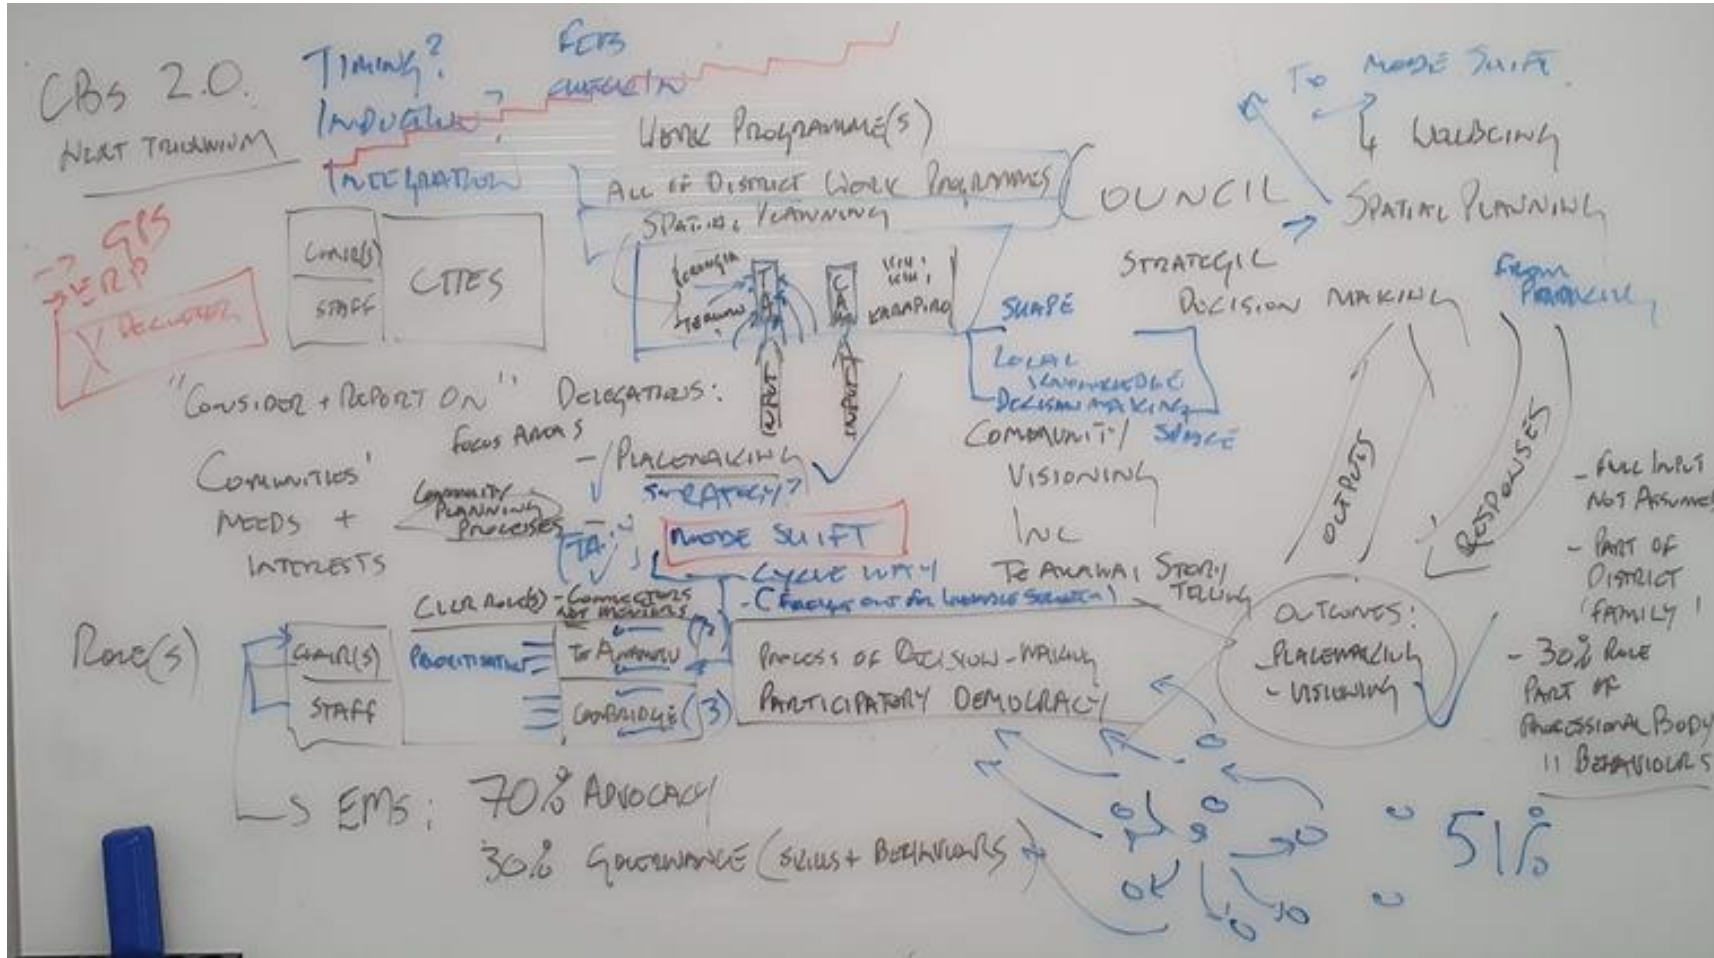 CBs 2.0.
NEXT TRIENNIUM
TIMING?
INDUCTION?
INTEGRATION
FEB
WORK PROGRAMME(S)
ALL OF DISTRICT WORK PROGRAMMES
SPATIAL PLANNING
COUNCIL
TO MODE SHIFT.
4 WELLBEING
SPATIAL PLANNING
STRATEGIC
DECISION MAKING
FROM
→ GPS
→ ERP
CHAIR(S)
STAFF
CTTES
KARAPIRO
INPUT
INPUT
SHAPE
LOCAL
KNOWLEDGE
DECISION MAKING
SPACE
"CONSIDER + REPORT ON"
DELEGATIONS:
FOCUS AREAS
- PLACEMAKING
STRATEGY?
MODE SHIFT
CYCLE WAY
COMMUNITIES'
NEEDS +
INTERESTS
COMMUNITY
PLANNING
PROCESSES
(TA)
COMMUNITY
VISIONING
INC
TE AWAMUTU STORY
TELLING
OUTPUTS
RESPONSES
- FULL INPUT
NOT ASSUMED
- PART OF
DISTRICT
'FAMILY'
- 30% RULE
PART OF
PROFESSIONAL BODY
" BEHAVIOURS
CLLR ROLE(S) - CONNECTORS
NOT MEMBERS
ROLE(S)
CHAIR(S)
STAFF
PRIORITISATION
TE AWAMUTU
CAMBRIDGE (3)
PROCESS OF DECISION-MAKING
PARTICIPATORY DEMOCRACY
OUTCOMES:
- PLACEMAKING
- VISIONING
→ EMS:
70% ADVOCACY
30% GOVERNANCE (SKILLS + BEHAVIOURS)
51%